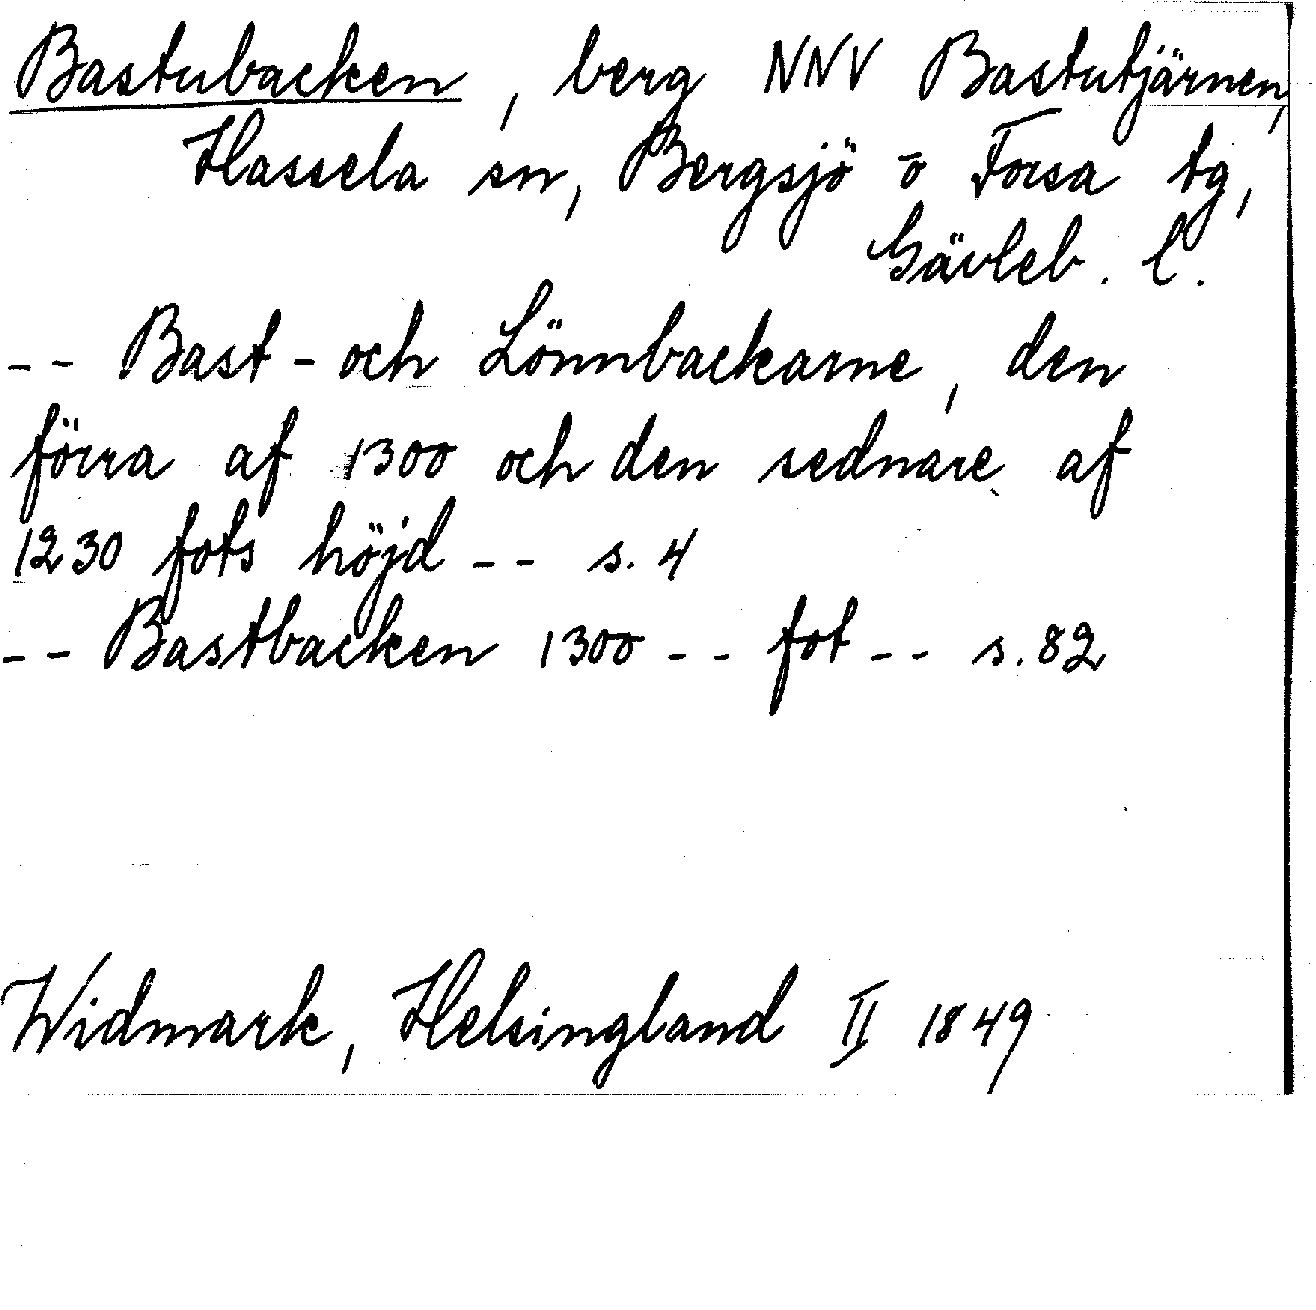 Bastubacken, berg NNV Bastutjärnen,
Hassela sn, Bergsjö o Forsa tg,
Gävleb. l.
-- Bast- och Lönnbackarne, den
förra af 1300 och den sednare af
1230 fots höjd -- s. 4
-- Bastbacken 1300 -- fot -- s. 82
Widmark, Helsingland II 1849